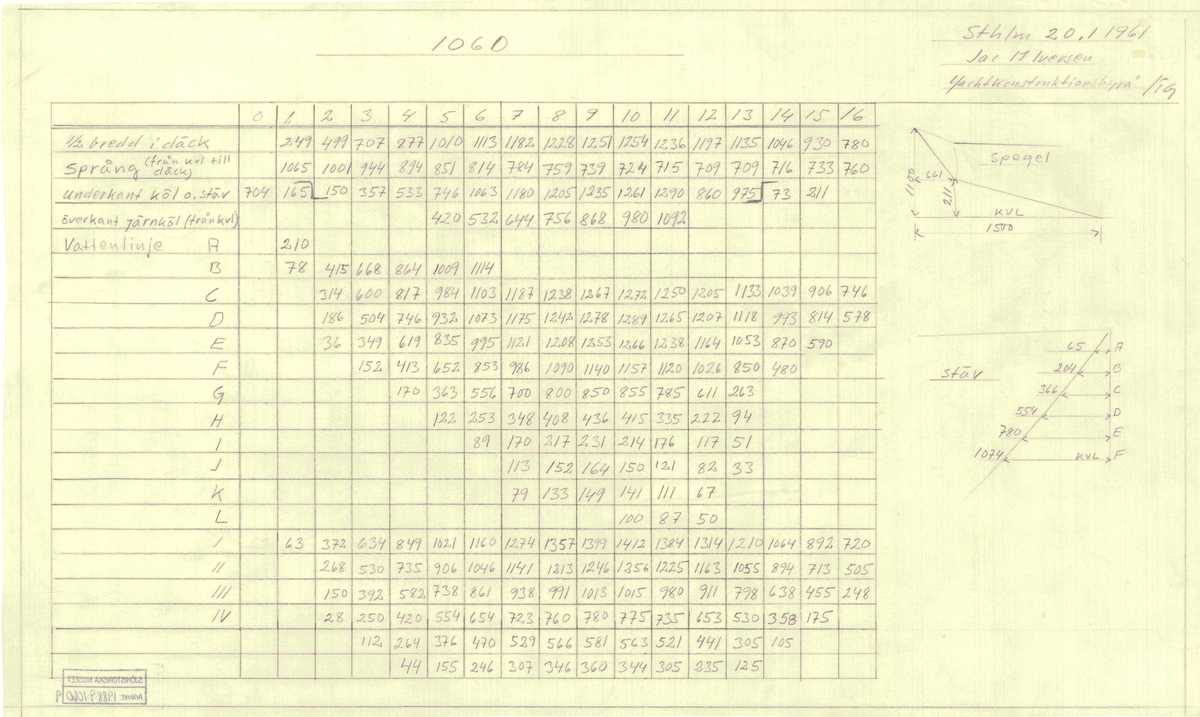 1060
Sthlm 20.1 1961
Jac M Iversen
Yachtkonstruktionsbyrå /
0 1 2 3 4 5 6 7 8 9 10 11 12 13 14 15 16
1/2 bredd i däck 249 499 707 877 1010 1113 1182 1228 1251 1254 1236 1197 1135 1046 930 780
Språng (från kvl till däck) 1065 1001 944 894 851 814 784 759 739 724 715 709 709 716 733 760
underkant köl o. stäv 704 165 150 357 533 746 1063 1180 1205 1235 1261 1290 860 975 73 211
överkant järnköl (från kvl) 420 532 644 756 868 980 1092
Vattenlinje A 210
B 78 415 668 864 1009 1114
C 314 600 817 984 1103 1187 1238 1267 1272 1250 1205 1133 1039 906 746
D 186 504 746 932 1073 1175 1242 1278 1289 1265 1207 1118 993 814 578
E 36 349 619 835 995 1121 1208 1253 1266 1238 1164 1053 870 590
F 152 413 652 853 986 1090 1140 1157 1120 1026 850 480
G 170 363 556 700 800 850 855 785 611 263
H 122 253 348 408 436 415 335 222 94
I 89 170 217 231 214 176 117 51
J 113 152 164 150 121 82 33
K 79 133 149 141 111 67
L 100 87 50
I 63 372 634 849 1021 1160 1274 1357 1399 1412 1384 1314 1210 1064 892 720
II 268 530 735 906 1046 1141 1213 1246 1256 1225 1163 1055 894 713 505
III 150 392 582 738 861 938 991 1013 1015 980 911 798 638 455 248
IV 28 250 420 554 654 723 760 780 775 735 653 530 358 175
112 264 376 470 529 566 581 563 521 441 305 105
44 155 246 307 346 360 344 305 235 125
Spegel
1100
661
211
KVL
1500
stäv
65 A
204 B
366 C
554 D
780 E
1074 KVL F
SJÖHISTORISKA MUSEET
Arkivet: 1988 9:1060 9